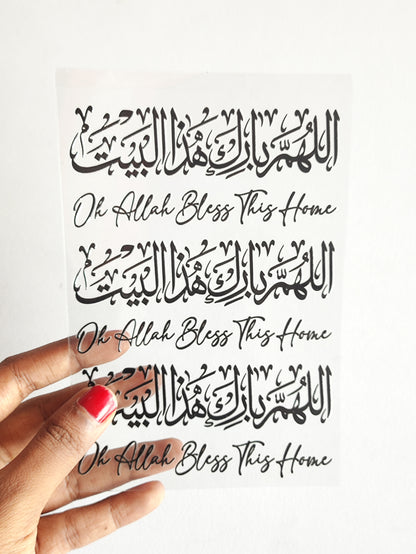 اللهم بارك هذا البيت
Oh Allah Bless This Home
اللهم بارك هذا البيت
Oh Allah Bless This Home
اللهم بارك هذا البيت
Oh Allah Bless This Home